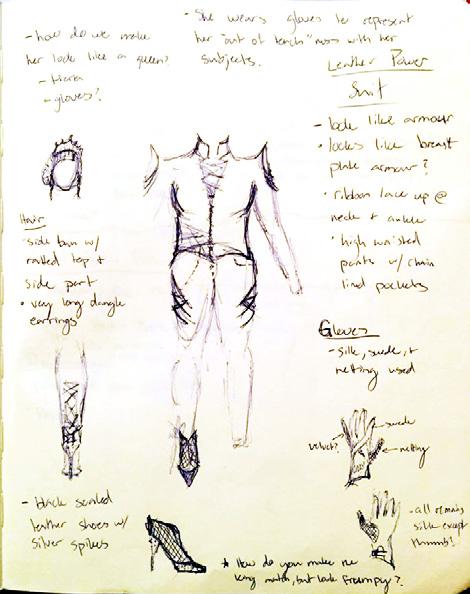 - how do we make
her look like a queen?
- tiara
- gloves?
- She wears gloves to represent
her "out of touch"ness with her
subjects.
Leather Power
Suit
- look like armour
• looks like breast
plate armour?
• ribbon lace up @
neck + ankle
• high waisted
pants w/ chain
lined pockets
Hair
- side bun w/
ratted top +
side part
• very long dangle
earrings
Gloves
- silk, suede, +
netting used
suede
velvet?
netting
- all remaining
silk except
thumb!
- black
leather shoes w/
silver spikes
* How do you make the
king match, but look frumpy?